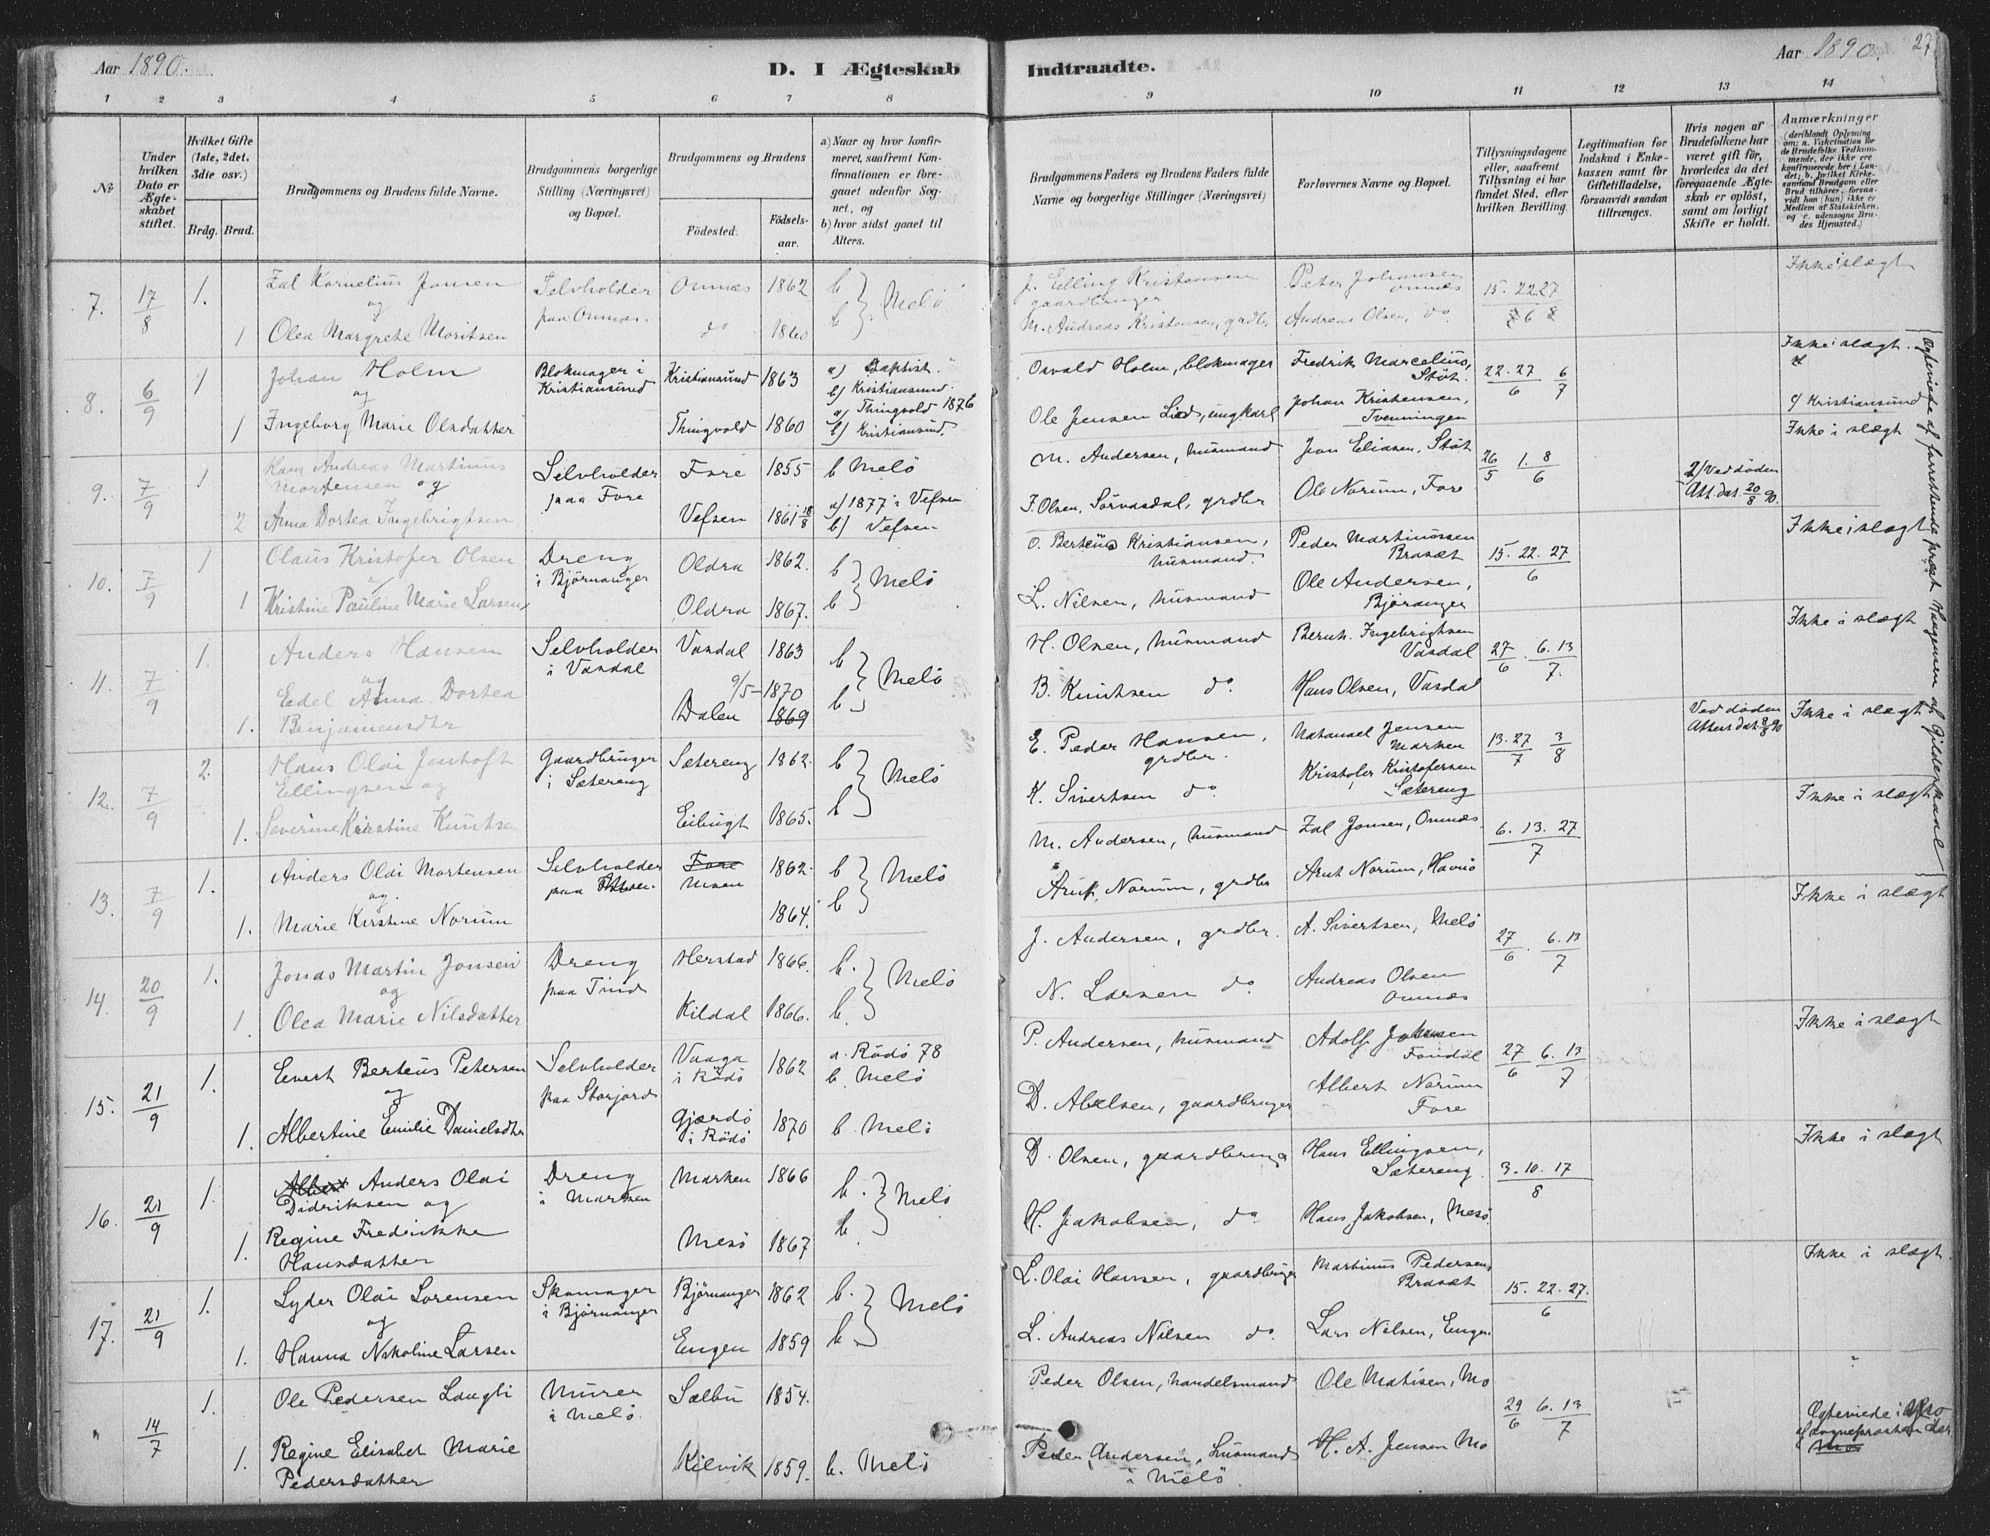 Aar 1890.
D. I Ægteskab Indtraadte.
Aar 1890.
27
1 2 3 4 5 6 7 8 9 10 11 12 13 14
No
Under hvilken Dato er Ægteskabet stiftet.
Hvilket Gifte (1ste, 2det, 3die osv.)
Brdg. Brud.
Brudgommens og Brudens fulde Navne.
Brudgommens borgerlige Stilling (Næringsvei) og Bopæl.
Brudgommens og Brudens
Födested.
Födselsaar.
a) Naar og hvor konfirmeret, saafremt Konfirmationen er foregaaet udenfor Sognet, og
b) hvor sidst gaaet til Alters.
Brudgommens Faders og Brudens Faders fulde Navne og borgerlige Stillinger (Næringsvei)
Forlovernes Navne og Bopæl.
Tillysningsdagene eller, saafremt Tillysning ei har fundet Sted, efter hvilken Bevilling.
Legitimation for Indskud i Enkekassen samt for Giftetilladelse, forsaavidt saadan tiltrænges.
Hvis nogen af Brudefolkene har været gift för, hvorledes da det foregaaende Ægteskab er oplöst, samt om lovligt Skifte er holdt.
Anmærkninger
(deriblandt Oplysning om: a. Vakcination for de Brudefolks Vedkommende, der ikke ere konfirmerede her i Landet; b. hvilket Kirkesamfund Brudgom eller Brud tilhører, forsaavidt han (hun) ikke er Medlem af Statskirken, og c. udensogns Brudes Hjemsted.)
7. 17/8 1. Zal Kornelius Jonsen Selvholder Onnæs 1862 b
og paa Onnæs. Melö
1 Olea Margrete Moritsen do 1860 b
J. Elling Kristensen Peter Johansen 15. 22 27 Ikke i slægt
gaardbruger Onnæs 6
M. Andreas Kristensen, grdbr. Andreas Olsen, do
8. 6/9 1 Johan Holm Blokmager i Kristiansund 1863 a) Baptist.
og Kristiansund b) Kristiansund
1 Ingeborg Marie Olsdatter Thingvold 1860 a) Thingvold 1876
b) Kristiansund.
Osvald Holm, blokmager Fredrik Marcelius, 22. 27/6 6/7 Ikke i slægt.
Stöt.
Ole Jensen Lied, ungkarl Johan Kristensen, c/ Kristiansund
Tvenningen
9. 7/9 1 Hans Andreas Martinus Selvholder Fore 1855 b Melö
Mortensen og paa Fore
2 Anna Dortea Ingebrigtsen Vefsen 1861 18/8 a) 1877 i Vefsen
b) Vefsen
M. Andersen, husmand Jon Eliasen, Stöt 26/5 1. 8/6 2/ Ved döden Ikke i slægt
I. Olsen, Sörvasdal, grdbr Ole Norum, Fore Att. dat. 20/8 90.
10. 7/9 1 Olaus Kristofer Olsen Dreng Oldra 1862. b
i Björnanger Melö
1 Kristine Pauline Marie Larsen Oldra 1867. b
O. Berteus Kristiansen, Peder Martinussen 15. 22. 27/6 Ikke i slægt
husmand. Brasæt
L. Nilsen, husmand Ole Andersen,
Björanger
11. 7/9 1. Anders Hansen Selvholder Vasdal 1863 b
og i Vasdal Melö
Edel Anna Dortea 9/5 - 1870 b
1. Benjamensdtr Dalen 1869
H. Olsen, husmand Bernh. Ingebrigtsen 27/6. 6. 13/7. Ikke i slægt
Vasdal
B. Knutsen do. Hans Olsen, Vasdal
12. 7/9 2. Hans Olai Jentoft Gaardbruger Sætereng 1862. b
Ellingsen og i Sætereng Melö
1. Severine Kirstine Knutsen Eilingt 1865. b
E. Peder Hansen, Natanael Jensen 13. 27/7 3/8 Ved döden Ikke i slægt
grdbr. Marken Attest dat. 90
K. Sivertsen do Kristofer Kristofersen
Sætereng
13. 7/9 1. Anders Olai Mortensen Selvholder Fore 1862. b
og paa Messen Melö
1. Marie Kirstine Norum 1864. b
M. Andersen, husmand Zal Jonsen, Onnæs 6. 13. 27/7 Ikke i slægt
Arnt Norum, grdbr Arnt Norum, Havnö
14. 20/9 1. Jonas Martin Jonsen Dreng Herstad 1866. b.
og paa Tind Melö
1. Olea Marie Nilsdatter Kildal 1866. b.
J. Andersen, grdbr. A. Sivertsen, Melö 27/6. 6. 13/7 Ikke i slægt
N. Larsen do Andreas Olsen
Onnæs
15. 21/9 1. Evert Berteus Petersen Selvholder Vaaga 1862 a. Rödö 78
og paa Storjord i Rödö b. Melö
1. Albertine Emilie Danielsdtr Gjærdö 1870 b. Melö
i Rödö
P. Andersen, husmand Adolf Johansen 27/6 6. 13/7 Ikke i slægt
Fondal
D. Abelsen, gaardbruger Albert Norum
Fore
16. 21/9 1. Albert Anders Olai Dreng Marken 1866 b.
Didriksen og i Marken Melö
1. Regine Fredrikke Mesö 1867 b.
Hansdatter
D. Olsen, gaardbruger Hans Ellingsen, 3. 10. 17/8 Ikke i slægt
Sætereng
H. Jakobsen, do Hans Jakobsen, Mesö
17. 21/9 1. Lyder Olai Sorensen Skomager Björnanger 1862 b.
og i Björnanger Melö
1. Hanna Nikoline Larsen Engen 1859 b.
L. Olai Hansen, gaardbruger Martinus Pedersen, 15. 22. 27./6 Ikke i slægt.
Brasæt
L. Andreas Nilsen do. Lars Nilsen, Engen
" 14/7 1. Ole Pedersen Langli Murer Sælbu 1854.
i Melö
1. Regine Elisabet Marie Kilvik 1859. b. Melö
Pedersdatter
Peder Olsen, handelsmand Ole Matisen, Mo 29/6 6. 13/7
Peder Andersen, husmand H. A. Jensen Mo
i Melö
Ægteviede i Mo
af sognepresten der
Ægteviede af forrettende præst Haagensen af Gildeskaal